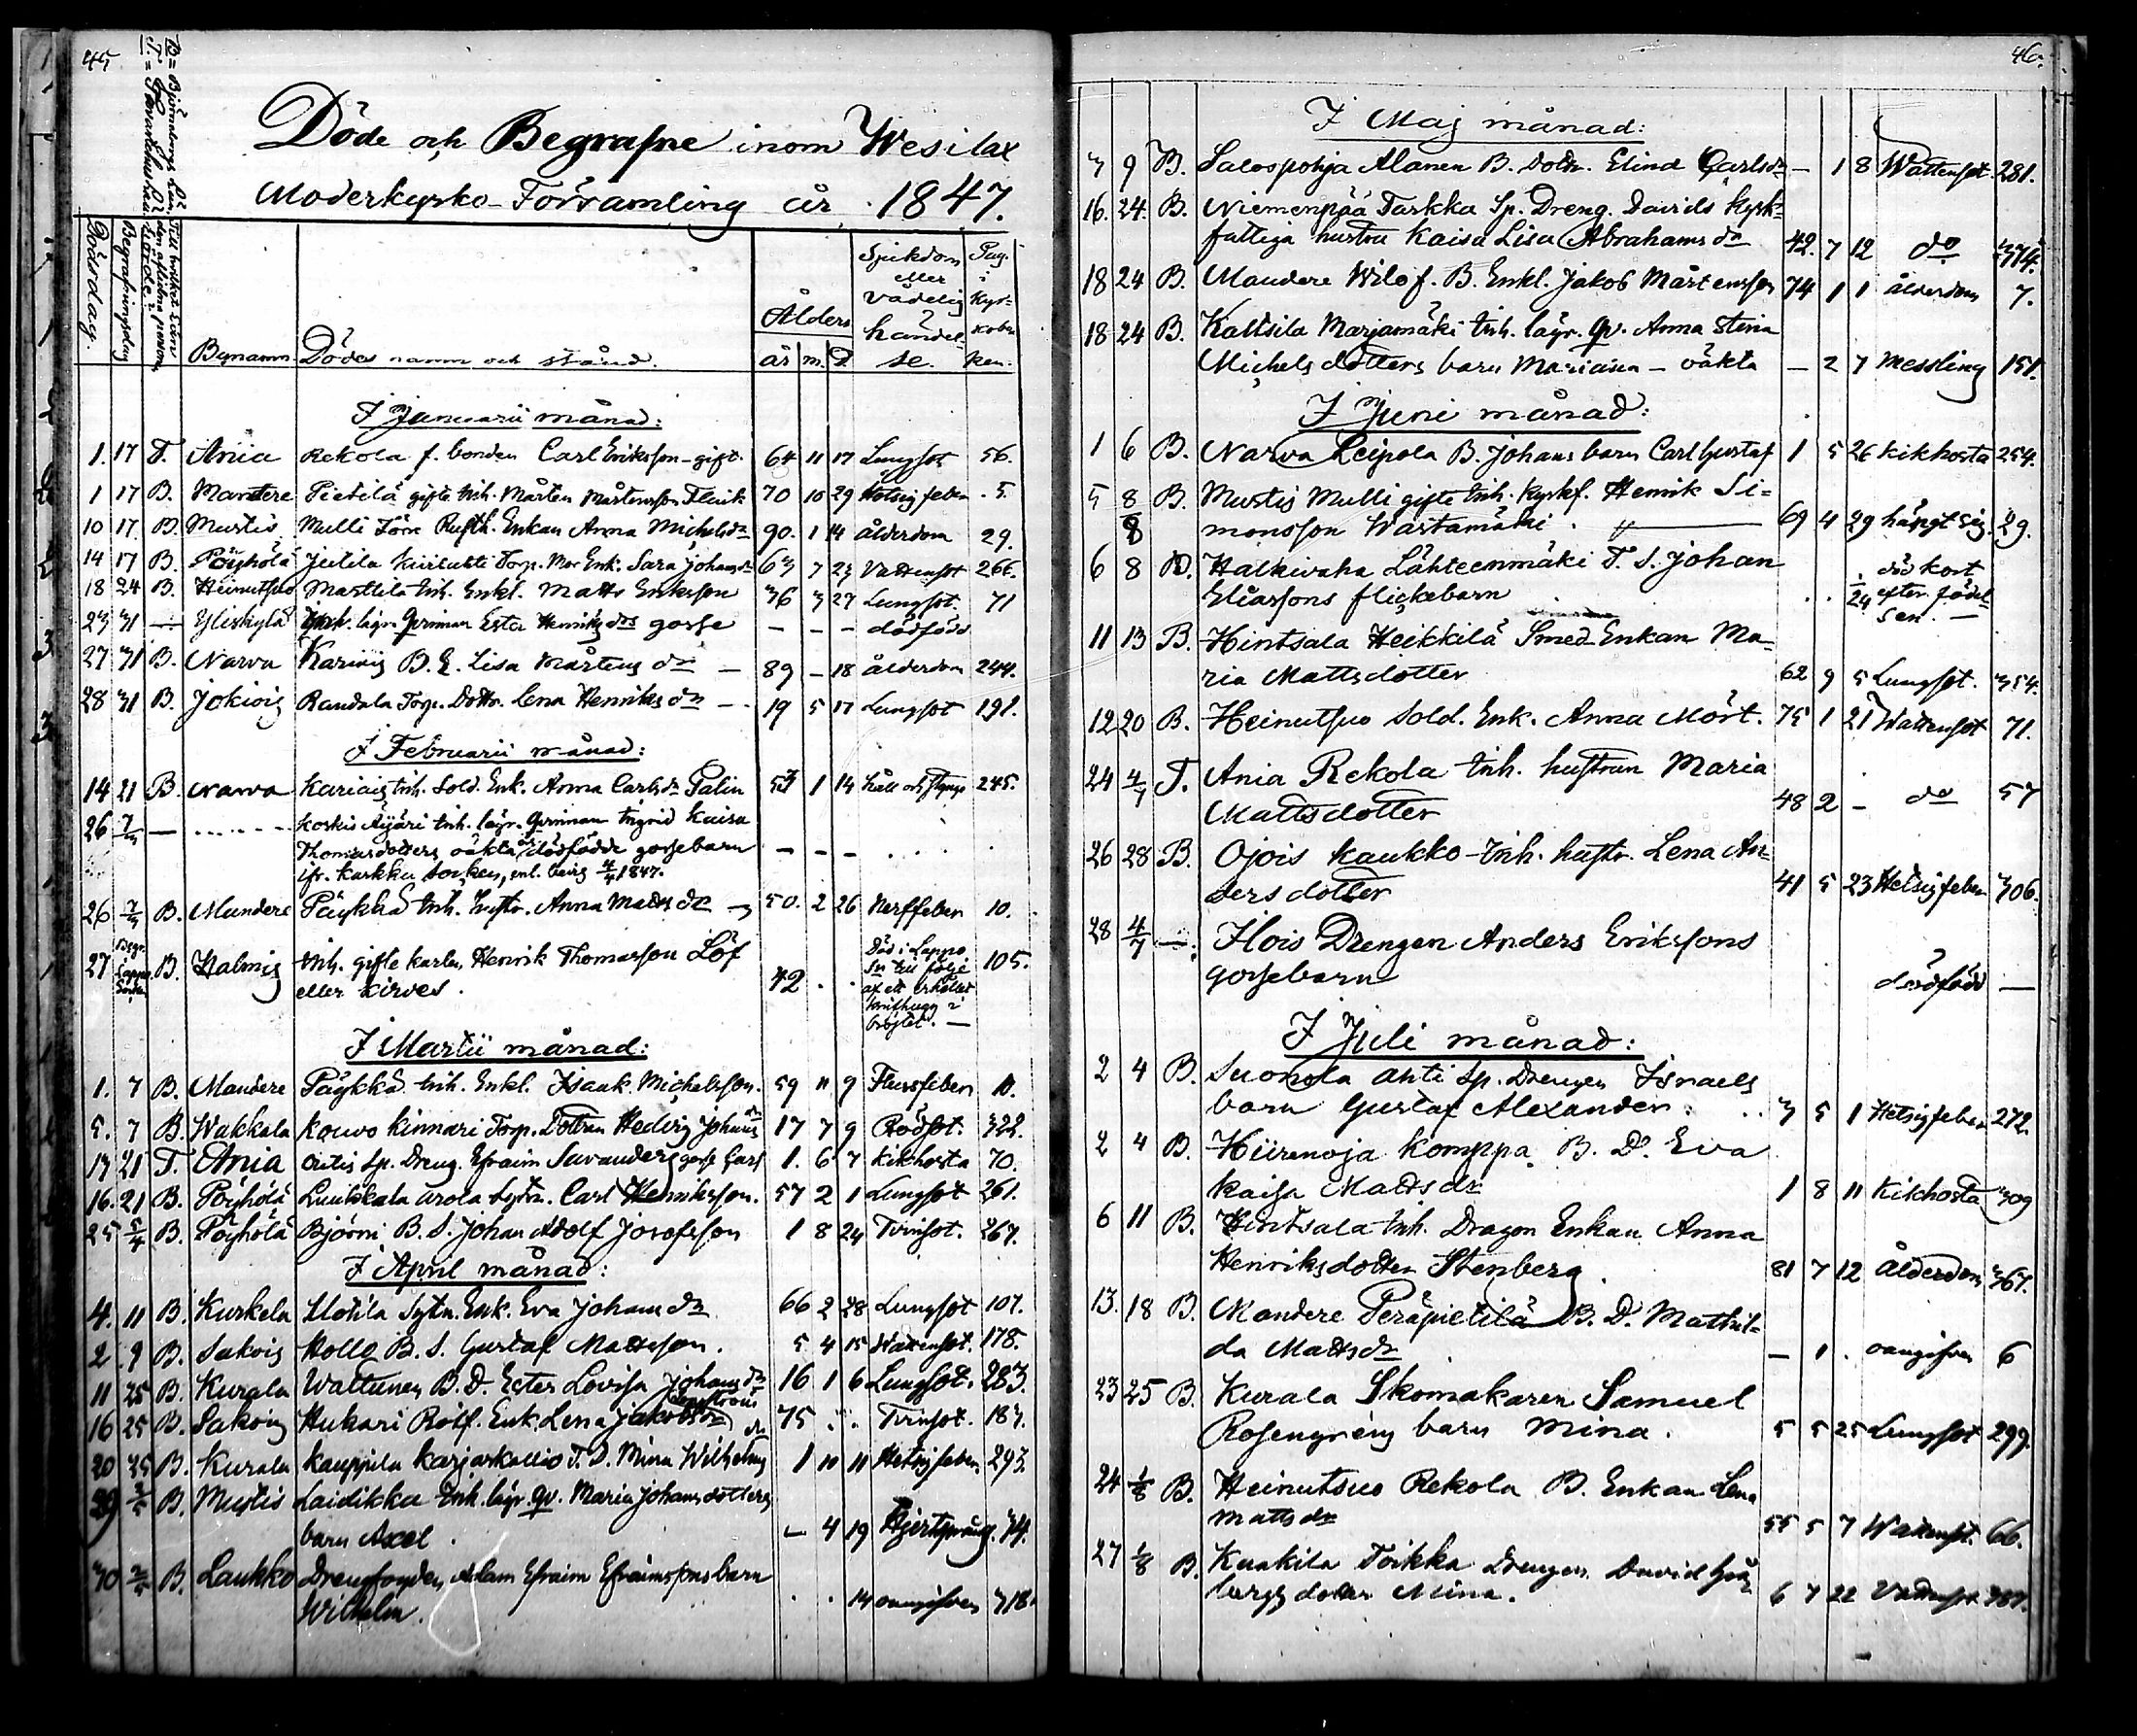 45
B = Björneborgs Län.
T. = Tavastehus Län.
Döde och Begrafne inom Wesilax
Moderkyrko-Församling år 1847.
Dödsdag. Begrafningsdag Till hvilket Län den aflidna personen hörde. Bynamn. Dödes namn och stånd. Ålder år m. D. Sjukdom eller vådelig händelse. Pag. i Kyrkoboken.
I Januarii månad:
1. 17 T. Ania Rekola f. bonden Carl Eriksson - gift. 64 11 17 Lungsot 56.
1 17 B. Mandere Pietilä gifte Inh. Mårten Mårtensson Flink 70 10 29 Hetsig feber 5.
10 17 B. Mustis Mulli Förre Rusth. Enkan Anna Michelsdr 90. 1 14 ålderdom 29.
14 17 B. Pöyhölä Jutila Torp. Mor Enk. Sara Johansdr 63 7 23 Vattensot 266.
18 24 B. Heinutsuo Marttila Inh. Enkl. Matts Eriksson 76 3 27 Lungsot. 71
23 31 — Yliskylä Inh. lägr. Qvinnan Ester Henriksdrs gosse - - - dödfödd
27 31 B. Narva Kariais B. E. Lisa Mårtensdr — 89 - 18 ålderdom 244.
28 31 B. Jokiois Randala Torp. Dottr. Lena Henriksdr — 19 5 17 Lungsot 191.
I Februarii månad:
14 21 B. Narva Kariais Inh. Sold. Enk. Anna Carlsdr Palin 53 1 14 håll och styng 245.
26 7/3 — ...... Koskis Äijäri Inh. lägr. Qvinnan Ingrid Kaisa
Thomasdotters oäkta dödfödde gossebarn - - -
ifr. Karkku socken, enl. bevis 4/4 1847.
26 7/3 B. Mandere Päykkä Inh. Hustr. Anna Mattsdr — 50. 2 26 Nerffeber 10.
27 Begr. i Lappo Socken B. Halmis Inh. gifte karlen Henrik Thomasson Löf
eller Kirves. 42 . . Död i Lappo Sn till följe af ett erhållet knifhugg i bröstet. — 105.
I Martii månad:
1. 7 B. Mandere Päykkä Inh. Enkl. Isaak Michelsson. 59 11 9 Flussfeber 10.
5. 7 B. Wakkala Kouvo Kinnari Torp. Dottran Hedvig Johansdr 17 7 9 Rödsot. 322.
13 21 T. Ania Ontis Sp. Dreng. Efraim Savanders gosse Carl 1. 6 7 Kikhosta 70.
16. 21 B. Pöyhölä Luukkala Arola Sytn. Carl Henriksson. 57 2 1 Lungsot 261.
25 5/4 B. Pöyhölä Björni B. S. Johan Adolf Josefsson 1 8 24 Tvinsot. 267.
I April månad:
4. 11 B. Kurkela Uotila Sytn. Enk. Eva Johansdr 66 2 28 Lungsot 107.
2 9 B. Sakois Kollo B. S. Gustaf Mattsson. 5 4 15 Wattensot. 178.
11 25 B. Kurala Waltunen B. D. Ester Lovisa Johansdr 16 1 6 Lungsot. 283.
16 25 B. Sakois Hukari Rotf. Enk. Lena Jakobsdr 75 . . Tvinsot. 187.
20 25 B. Kurala Kauppila Karjarkallio T. D. Mina Wilhelmsdr 1 10 11 Hetsig feber 293.
29 2/5 B. Mustis Laidikka Inh. lägr. Qv. Maria Johansdotters
barn Axel. - 4 19 34.
30 2/5 B. Laukko Drengfogden Adam Efraim Efraimssons barn
Wilhelm. . . 14 oangifven 318.
46.
I Maj månad:
3 9 B. Salospohja Alanen B. Dottr. Elina Carlsdr — 1 8 Wattensot. 281.
16. 24. B. Niemenpää Tarkka Sp. Dreng. Davids kyrk=
fattiga hustru Kaisa Lisa Abrahamsdr 42. 7 12 do 374.
18 24 B. Mandere Wilof. B. Enkl. Jakob Mårtensson 74 1 1 ålderdom 7.
18 24 B. Kaltsila Marjamäki Inh. lägr. Qv. Anna Stina
Michelsdotters barn Mariana - oäkta — 2 7 messling 151.
I Juni månad:
1 6 B. Narva Leipola B. Johans barn Carl Gustaf 1 5 26 kikhosta 254.
5 8/8 B. Mustis Mulli gifte Inh. kyrkf. Henrik Si=
monsson Wastamäki. 69 4 29 hängt sig. 29.
6 8 B. Halkivaha Lähteenmäki T. S. Johan
Eliassons flickebarn . . 1/24 död kort efter födelsen. —
11 13 B. Hintsala Heikkilä Smed Enkan Ma-
ria Mattsdotter 62 9 5 Lungsot. 354.
12 20 B. Heinutsuo Sold. Enk. Anna Mört. 75 1 21 Wattensot 71.
24 4/7 T. Ania Rekola Inh. hustrun Maria
Mattsdotter 48 2 - do 57
26 28 B. Ojois Kaukko Inh. hustr. Lena An-
dersdotter 41 5 23 Hetsig feber 306.
28 4/7 — Ilois Drengen Anders Erikssons
gossebarn dödfödd —
I Juli månad:
2 4 B. Suonola Anti Sp. Drengen Israels
barn Gustaf Alexander. 3 5 1 Hetsig feber 272.
2 4 B. Hiirenoja Komppa B. D. Eva
Kaisa Mattsdr 1 8 11 Kikhosta 309
6 11 B. Hintsala Inh. Dragon Enkan Anna
Henriksdotter Stenberg. 81 7 12 Ålderdom 367.
13. 18 B. Mandere Peräpietilä B. D. Mathil=
da Mattsdr — 1 . oangifven 6
23 25 B. Kurala Skomakaren Samuel
Rosengrens barn Mina. 5 5 25 Lungsot 299.
24 1/8 B. Heinutsuo Rekola B. Enkan Lena
Mattsdr 55 5 7 Wattensot. 66.
27 1/8 B. Kuakila Toikka Drengen David
bergs dotter Mina. 6 7 22 Vattensot